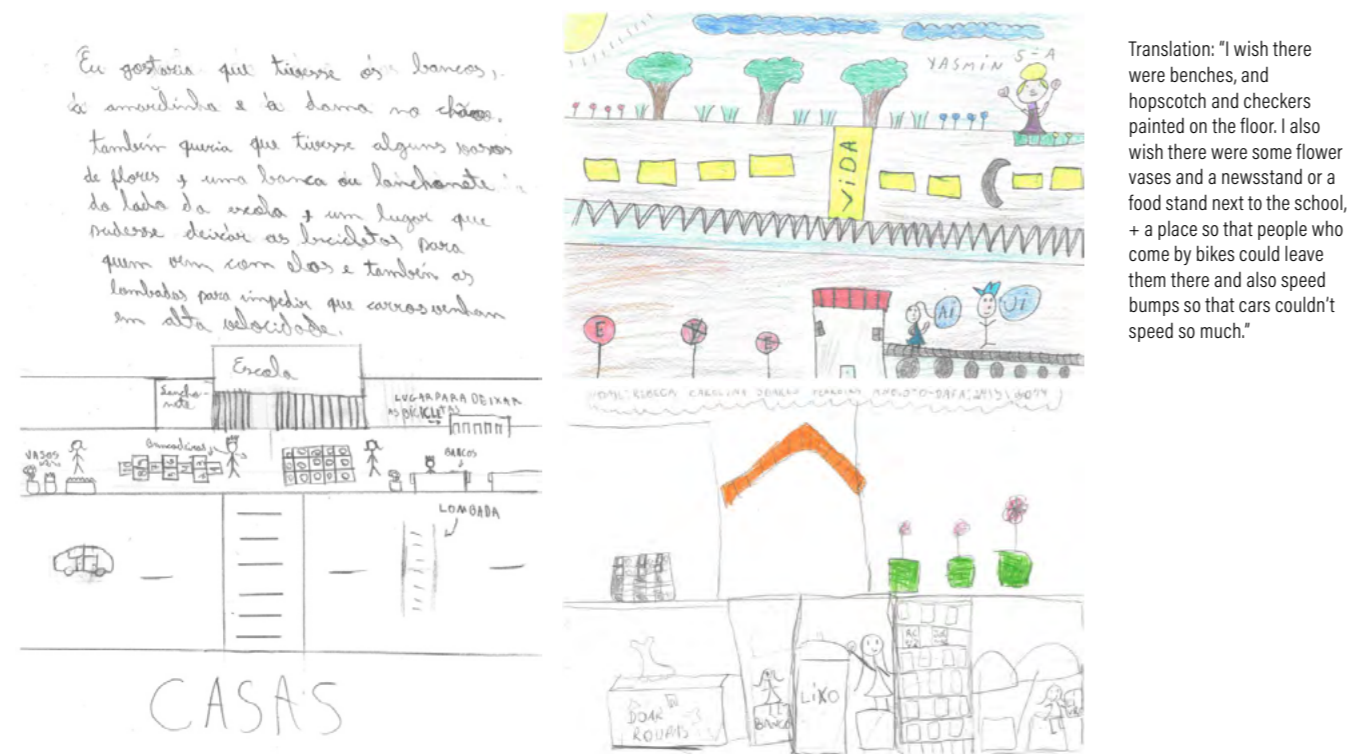 Eu gostaria que tivesse os bancos,
a amarelinha e a dama no chão.
também queria que tivesse alguns vasos
de flores e uma banca ou lanchonete
do lado da escola e um lugar que
pudesse deixar as bicicletas para
quem vem com elas e também as
lombadas para impedir que carros venham
em alta velocidade.
Escola
Lancho-
nete
LUGAR PARA DEIXAR
AS BICICLETAS
VASOS
Brincadeiras
BANCOS
LOMBADA
CASAS
YASMIN 5-A
VIDA
E
E
Ai
Ui
REBECA CAROLINA
DOAR
ROUPAS
BANCO
LIXO
Translation: "I wish there
were benches, and
hopscotch and checkers
painted on the floor. I also
wish there were some flower
vases and a newsstand or a
food stand next to the school,
+ a place so that people who
come by bikes could leave
them there and also speed
bumps so that cars couldn't
speed so much."